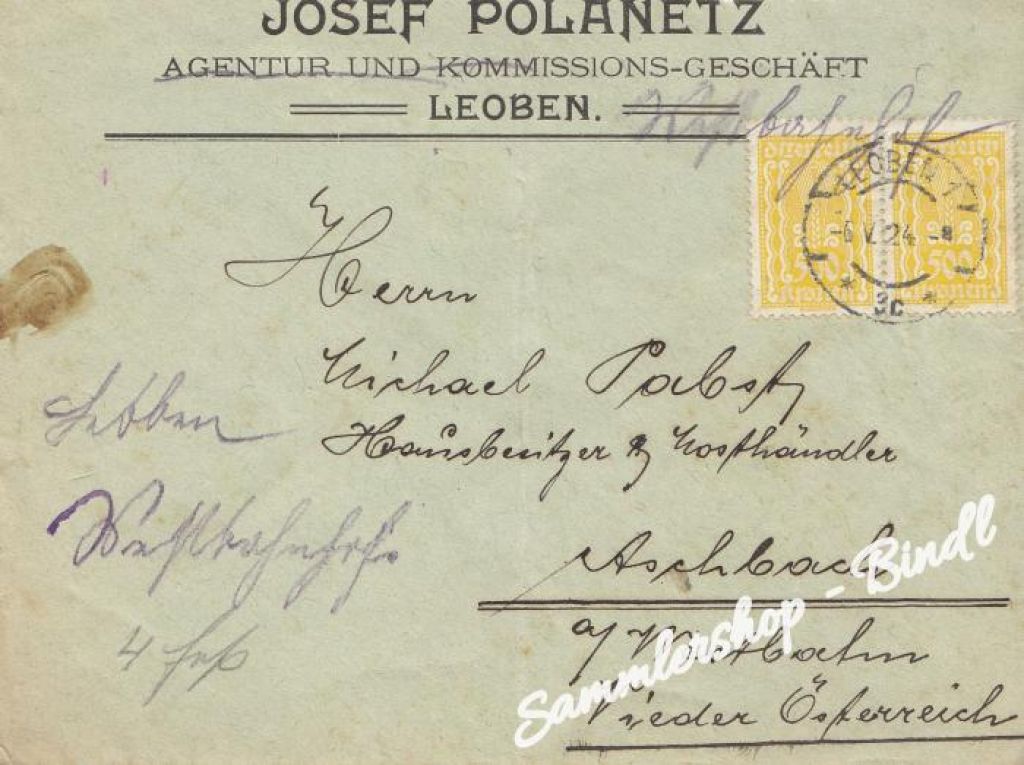 JOSEF POLANETZ
AGENTUR UND KOMMISSIONS-GESCHÄFT
LEOBEN.
LEOBEN 1
-6 V 24
3c
500 500
Kronen Kronen
Herrn
Michael Pabst
Hausbesitzer & Mosthändler
Aschbach
a/ Westbahn
Nieder Österreich
Leoben
Westbahnhof
4
Sammlershop - Bindl